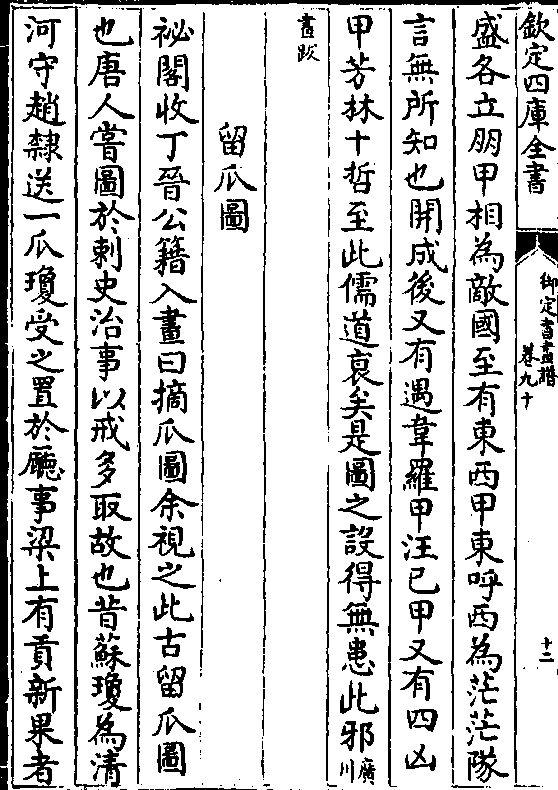 欽定四庫全書
御定書畫譜
卷九十
十二
盛各立朋甲相為敵國至有東西甲東呼西為茫茫隊
言無所知也開成後又有遇韋羅甲汪已甲又有四凶
甲芳林十哲至此儒道衰矣是圖之設得無患此邪廣川
書跋
留瓜圖
祕閣收丁晉公籍入畫曰摘瓜圖余視之此古留瓜圖
也唐人嘗圖於刺史治事以戒多取故也昔蘇瓊為清
河守趙隸送一瓜瓊受之置於廳事梁上有貢新果者